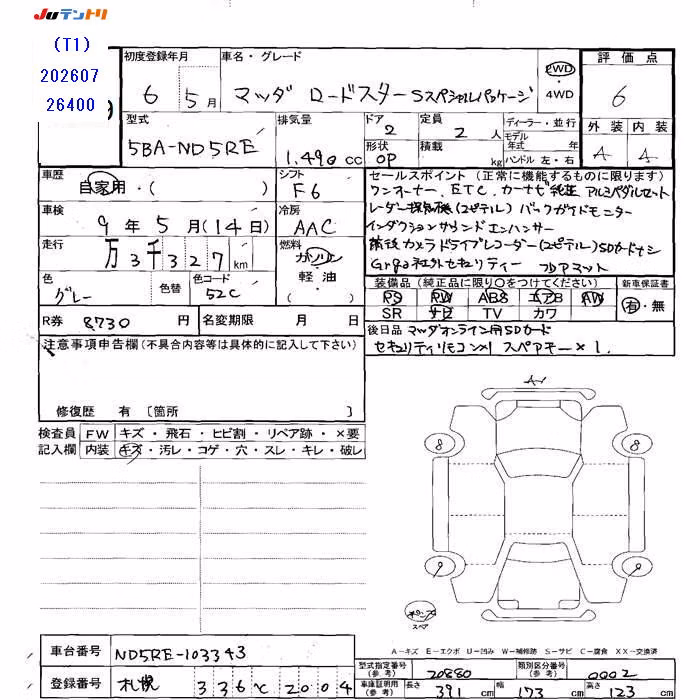 JUテントリ
(T1)
202607
26400
初度登録年月
6 5月
車名・グレード
マッダ ロードスター Sスペシャルパッケージ
2WD
4WD
評価点
6
外装 内装
A A
型式
5BA-ND5RE
排気量
1,490cc
ドア
2
定員
2人
形状
OP
積載
kg
ディーラー・並行
モデル年式 年
ハンドル 左・右
車歴
自家用・( )
シフト
F6
車検
9年5月(14日)
冷房
AAC
走行
万3千327km
燃料
ガソリン
軽油
( ・ )
色
グレー
色替
色コード
52C
R券 8730円
名変期限 月 日
セールスポイント (正常に機能するものに限ります)
ワンオーナー、ETC、カーナビ 純正 アルミペダルセット
レーダー探知機(ユピテル) バックガイドモニター
インダクションサウンドエンハンサー
前後カメラドライブレコーダー(ユピテル)SDカードナシ
Grgo社外セキュリティー フロアマット
装備品 (純正品に限り○をつけてください)
PS PW ABS エアB AW
SR ナビ TV カワ
新車保証書
有・無
後日品 マツダオンライン用SDカード
セキュリティリモコン×1 スペアキー×1.
注意事項申告欄(不具合内容等は具体的に記入して下さい)
修復歴 有 〔箇所 〕
検査員 FW キズ・飛石・ヒビ割・リペア跡・×要
記入欄 内装 キズ・汚レ・コゲ・穴・スレ・キレ・破レ
A
8 8
9 9
ポンプ
スペア
A-キズ E-エクボ U-凹み W-補修跡 S-サビ C-腐食 XX-交換済
車台番号 ND5RE-103343
登録番号 札幌 336 て 2004
型式指定番号(参考) 20880
類別区分番号(参考) 0002
車庫証明用(参考) 長さ 391cm 幅 173cm 高さ 123cm